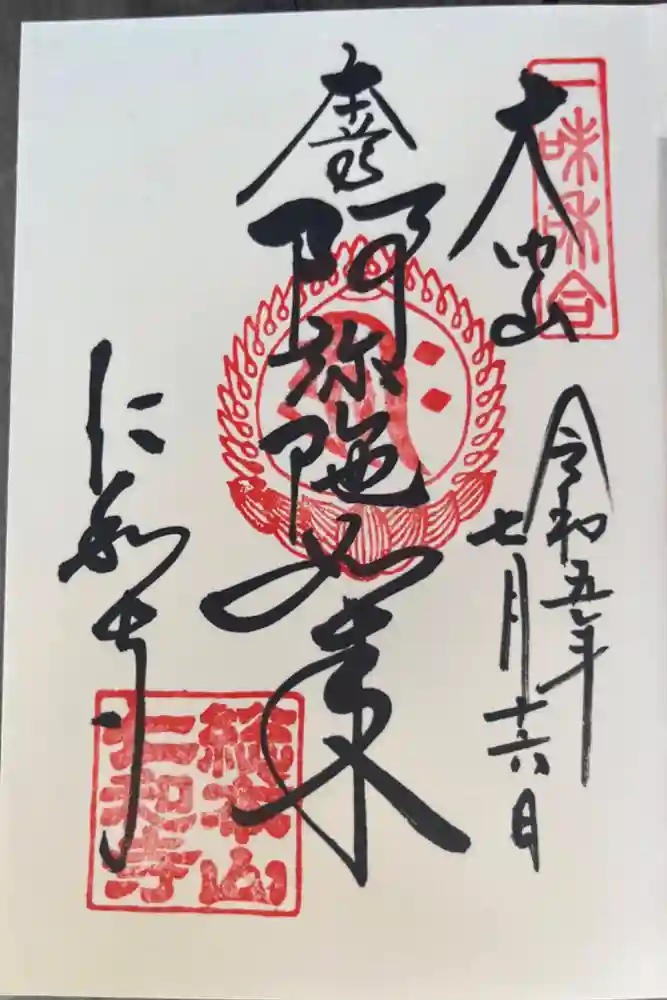 一味和合
大内山
令和五年
七月十六日
本尊
阿弥陀如来
仁和寺
総本山
仁和寺